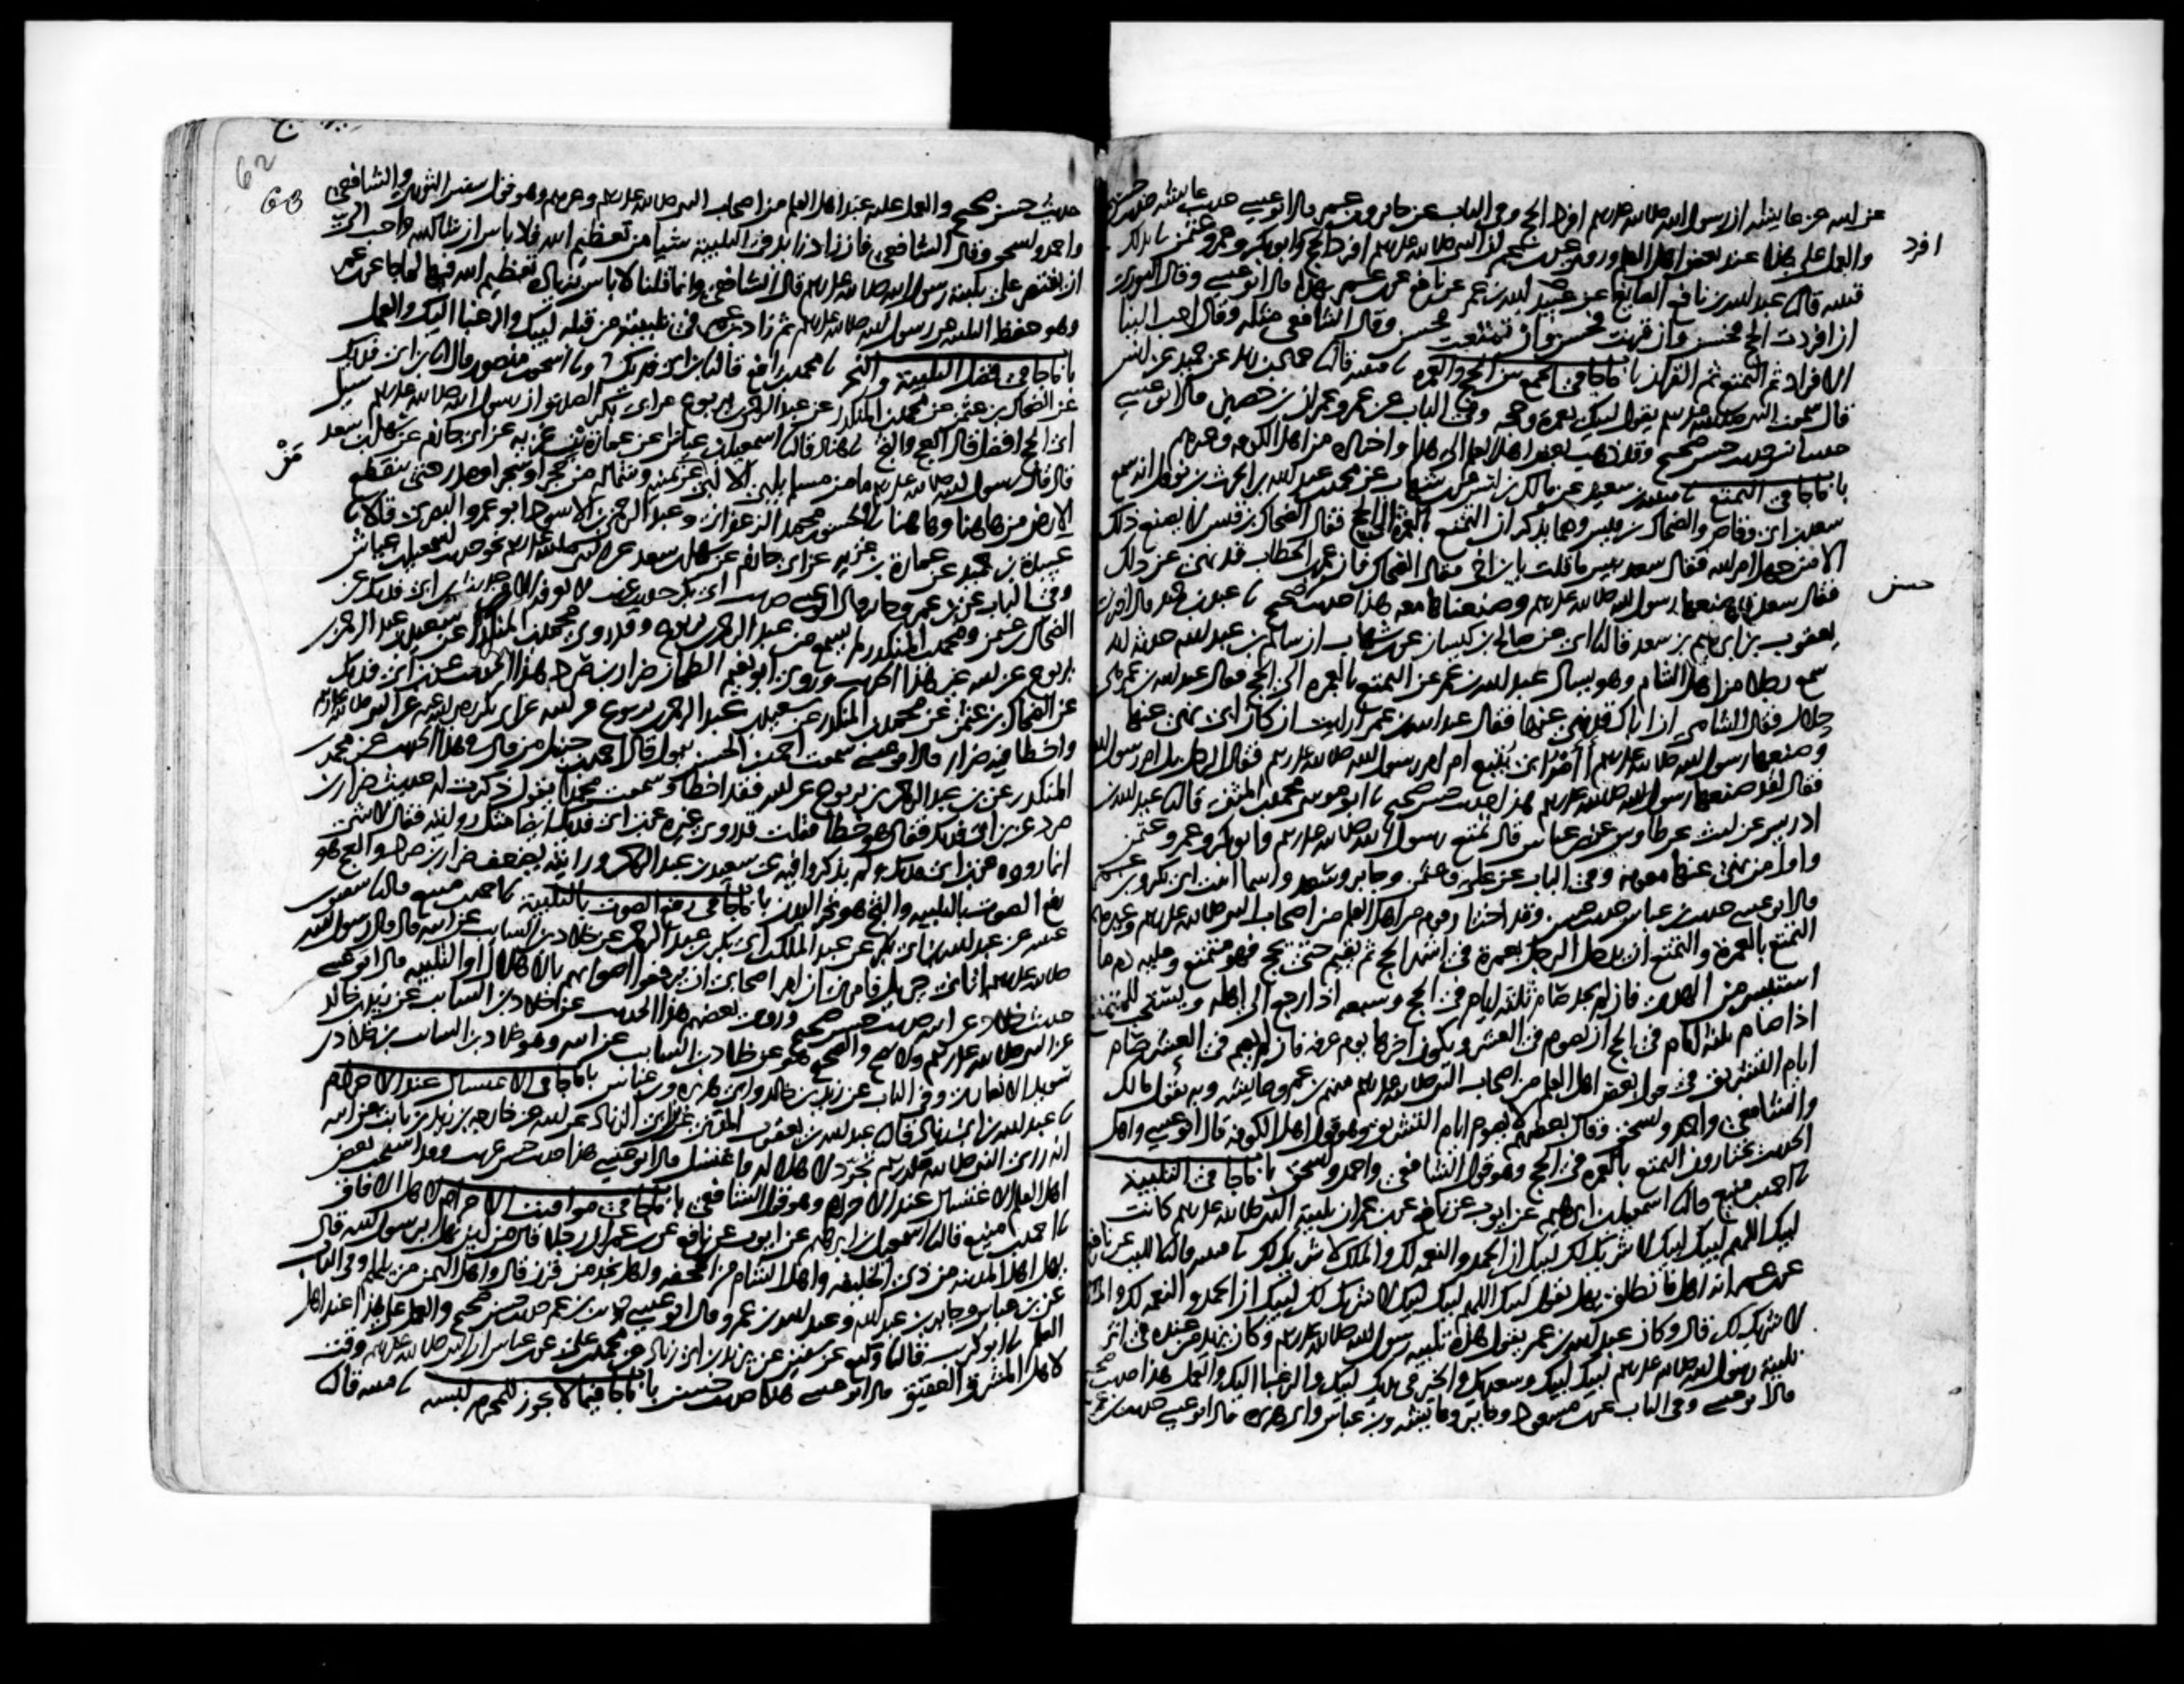 عن ابيه عن عايشه ان رسول الله صلى الله عليه وسلم افرد الحج وفي الباب عن جابر وبن عمر قال ابو عيسى حديث عايشه حديث حسن صحيح
افرد
والعمل على هذا عند بعض اهل العلم وروي عن بن عمر ان النبي صلى الله عليه وسلم افرد الحج وابو بكر وعمر وعثمن نا بذلك
قتيبه قال نا عبد الله بن نافع الصايغ عن عبيد الله بن عمر عن نافع عن بن عمر بهذا قال ابو عيسى وقال الثوري
ان افردت الحج فحسن وان قرنت فحسن وان تمتعت فحسن وقال الشافعي مثله وقال احب الينا
الافراد ثم التمتع ثم القران باب ما جا في الجمع بين الحج والعمره نا قتيبه قال نا حماد بن زيد عن حميد عن انس
قال سمعت النبي صلى الله عليه وسلم يقول لبيك بعمرة وحجه وفي الباب عن عمر وعمران بن حصين قال ابو عيسى
حديث انس حديث حسن صحيح وقد ذهب بعض اهل العلم الى هذا واختاره من اهل الكوفه وغيرهم
باب ما جا في التمتع نا قتيبه بن سعيد عن مالك بن انس عن بن شهاب عن محمد بن عبد الله بن الحرث بن نوفل انه سمع
سعد بن ابي وقاص والضحاك بن قيس وهما يذكران التمتع بالعمرة الى الحج فقال الضحاك بن قيس لا يصنع ذلك
الا من جهل امر الله فقال سعد بيس ما قلت يا بن اخي فقال الضحاك فان عمر بن الخطاب قد نهى عن ذلك
فقال سعد قد صنعها رسول الله صلى الله عليه وسلم وصنعناها معه هذا حديث صحيح نا عبد بن حميد قال اخبرني
حسن
يعقوب بن ابراهيم بن سعد قال نا ابي عن صالح بن كيسان عن بن شهاب ان سالم بن عبد الله حدثه انه
سمع رجلا من اهل الشام وهو يسال عبد الله بن عمر عن التمتع بالعمره الى الحج فقال عبد الله بن عمر هي
حلال فقال الشامي ان اباك قد نهى عنها فقال عبد الله بن عمر ارايت ان كان ابي نهى عنها
وصنعها رسول الله صلى الله عليه وسلم أأمر ابي يتبع ام امر رسول الله صلى الله عليه وسلم فقال الرجل بل امر رسول الله
فقال لقد صنعها رسول الله صلى الله عليه وسلم هذا حديث حسن صحيح نا ابو موسى محمد بن المثنى قال نا عبد الله بن
ادريس عن ليث عن طاوس عن بن عباس قال تمتع رسول الله صلى الله عليه وسلم وابو بكر وعمر وعثمن
واول من نهى عنها معويه وفي الباب عن علي وعثمن وجابر وسعد واسما ابنت ابي بكر وبن عمر
قال ابو عيسى حديث بن عباس حديث حسن وقد اختار قوم من اهل العلم من اصحاب النبي صلى الله عليه وسلم وغيرهم
التمتع بالعمرة والتمتع ان يدخل الرجل بعمرة في اشهر الحج ثم يقيم حتى يحج فهو متمتع وعليه دم ما
استيسر من الهدي فان لم يجد صام ثلثه ايام في الحج وسبعه اذا رجع الى اهله ويستحب للمتمتع
اذا صام ثلثه ايام في الحج ان يصوم في العشر ويكون اخرها يوم عرفه فان لم يصم في العشر صام
ايام التشريق في قول بعض اهل العلم من اصحاب النبي صلى الله عليه وسلم منهم بن عمر وعايشه وبه يقول مالك
والشافعي واحمد واسحق وقال بعضهم لا يصوم ايام التشريق وهو قول اهل الكوفه قال ابو عيسى واهل
الحديث يختارون التمتع بالعمره في الحج وهو قول الشافعي واحمد واسحق باب ما جا في التلبية
نا احمد بن منيع قال نا اسمعيل بن ابرهيم عن ايوب عن نافع عن بن عمر ان تلبية النبي صلى الله عليه وسلم كانت
لبيك اللهم لبيك لبيك لا شريك لك لبيك ان الحمد والنعمه لك والملك لا شريك لك نا قتيبه قال نا الليث عن نافع
عن بن عمر انه اهل فانطلق يهل يقول لبيك اللهم لبيك لبيك لا شريك لك لبيك ان الحمد والنعمه لك والملك
لا شريك لك قال وكان عبد الله بن عمر يقول هذه تلبيه رسول الله صلى الله عليه وسلم وكان يزيد من عنده في اثر
تلبية رسول الله صلى الله عليه وسلم لبيك لبيك وسعديك والخير في يديك لبيك والرغبا اليك والعمل هذا حديث صحيح
قال ابو عيسى وفي الباب عن بن مسعود وجابر وعايشه وبن عباس وابي هريره قال ابو عيسى حديث بن عمر
62
63
حديث حسن صحيح والعمل عليه عند اهل العلم من اصحاب النبي صلى الله عليه وسلم وغيرهم وهو قول سفين الثوري والشافعي
واحمد واسحق وقال الشافعي فان زاد زايد في التلبية شيا من تعظيم الله فلا باس ان شا الله واحب الي
ان يقتصر على تلبية رسول الله صلى الله عليه وسلم قال الشافعي وانما قلنا لا باس بزيادة تعظيم الله فيها لما جا عن بن عمر
وهو حفظ التلبيه عن رسول الله صلى الله عليه وسلم ثم زاد بن عمر في تلبيته من قبله لبيك والرغبا اليك والعمل
باب ما جا في فضل التلبية والنحر نا محمد بن رافع قال نا بن ابي فديك ونا اسحق بن منصور قال نا بن ابي فديك
عن الضحاك بن عثمن عن محمد بن المنكدر عن عبد الرحمن بن يربوع عن ابي بكر الصديق ان رسول الله صلى الله عليه وسلم سيل
اي الحج افضل قال العج والثج نا هناد قال نا اسمعيل بن عياش عن عمارة بن غزيه عن ابي حازم عن سهل بن سعد
قال قال رسول الله صلى الله عليه وسلم ما من مسلم يلبي الا لبى عن يمينه وشماله من حجر او شجر او مدر حتى تنقطع
مَنْ
الارض من هاهنا وهاهنا نا الحسن بن محمد الزعفراني وعبد الرحمن بن الاسود ابو عمرو البصري قالا نا
عبيدة بن حميد عن عمارة بن غزيه عن ابي حازم عن سهل بن سعد عن النبي صلى الله عليه وسلم نحو حديث اسمعيل بن عياش
وفي الباب عن بن عمر وجابر قال ابو عيسى حديث ابي بكر حديث غريب لا نعرفه الا من حديث بن ابي فديك عن
الضحاك بن عثمن ومحمد بن المنكدر لم يسمع من عبد الرحمن بن يربوع وقد روى محمد بن المنكدر عن سعيد بن عبد الرحمن بن
يربوع عن ابيه غير هذا الحديث وروى ابو نعيم الطحان ضرار بن صرد هذا الحديث عن بن ابي فديك
عن الضحاك بن عثمن عن محمد بن المنكدر عن سعيد بن عبد الرحمن بن يربوع عن ابيه عن ابي بكر رضي الله عنه عن النبي صلى الله عليه وسلم
واخطا فيه ضرار قال ابو عيسى سمعت احمد بن الحسن يقول قال احمد بن حنبل من قال في هذا الحديث عن محمد بن
المنكدر عن بن عبد الرحمن بن يربوع عن ابيه فقد اخطا وسمعت محمدا يقول ذكرت له حديث ضرار بن
صرد عن بن ابي فديك فقال هو خطا فقلت قد روى غيره عن بن ابي فديك ايضا مثل روايته فقال لا شي
انما رووه عن بن ابي فديك ولم يذكروا فيه عن سعيد بن عبد الرحمن ورايته يضعف ضرار بن صرد والعج هو
رفع الصوت بالتلبيه والثج هو نحر البدن باب ما جا في رفع الصوت بالتلبية نا احمد بن منيع قال نا سفين بن
عيينه عن عبد الله بن ابي بكر عن عبد الملك بن ابي بكر بن عبد الرحمن عن خلاد بن السايب عن ابيه قال قال رسول الله
صلى الله عليه وسلم اتاني جبريل فامرني ان امر اصحابي ان يرفعوا اصواتهم بالاهلال او التلبيه قال ابو عيسى
حديث خلاد عن ابيه حديث حسن صحيح وروى بعضهم هذا الحديث عن خلاد بن السايب عن زيد بن خالد
عن النبي صلى الله عليه وسلم ولا يصح والصحيح هو عن خلاد بن السايب عن ابيه وهو خلاد بن السايب بن خلاد بن
سويد الانصاري وفي الباب عن زيد بن خالد وابي هريره وبن عباس باب ما جا في الاغتسال عند الاحرام
نا عبد الله بن ابي زياد قال نا عبد الله بن يعقوب المدني عن بن ابي الزناد عن ابيه عن خارجه بن زيد بن ثابت عن ابيه
انه راى النبي صلى الله عليه وسلم تجرد لاهلاله واغتسل قال ابو عيسى هذا حديث حسن غريب وقد استحب بعض
اهل العلم الاغتسال عند الاحرام وهو قول الشافعي باب ما جا في مواقيت الاحرام لاهل الافاق
نا احمد بن منيع قال نا اسمعيل بن ابرهيم عن ايوب عن نافع عن بن عمر ان رجلا قال من اين نهل يا رسول الله قال
يهل اهل المدينه من ذي الحليفه واهل الشام من الجحفه واهل نجد من قرن قال واهل اليمن من يلملم وفي الباب
عن بن عباس وجابر بن عبد الله وعبد الله بن عمرو قال ابو عيسى حديث بن عمر حديث حسن صحيح والعمل على هذا عند اهل
العلم نا ابو كريب قال نا وكيع عن سفين عن يزيد بن ابي زياد عن محمد بن علي عن بن عباس ان النبي صلى الله عليه وسلم وقت
لاهل المشرق العقيق قال ابو عيسى هذا حديث حسن باب ما جا فيما لا يجوز للمحرم لبسه نا قتيبه قال نا